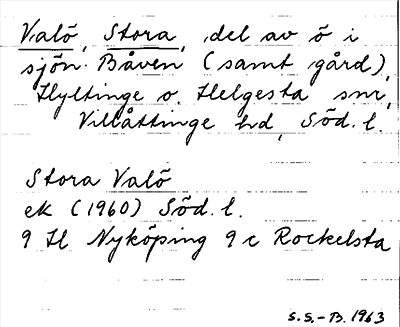 Valö, Stora, del av ö i
sjön Båven (samt gård),
Hyltinge o. Helgesta snr,
Villåttinge hd, Söd. l.
Stora Valö
ek (1960) Söd. l.
9 H Nyköping 9 c Rockelsta
S.S.-B. 1963